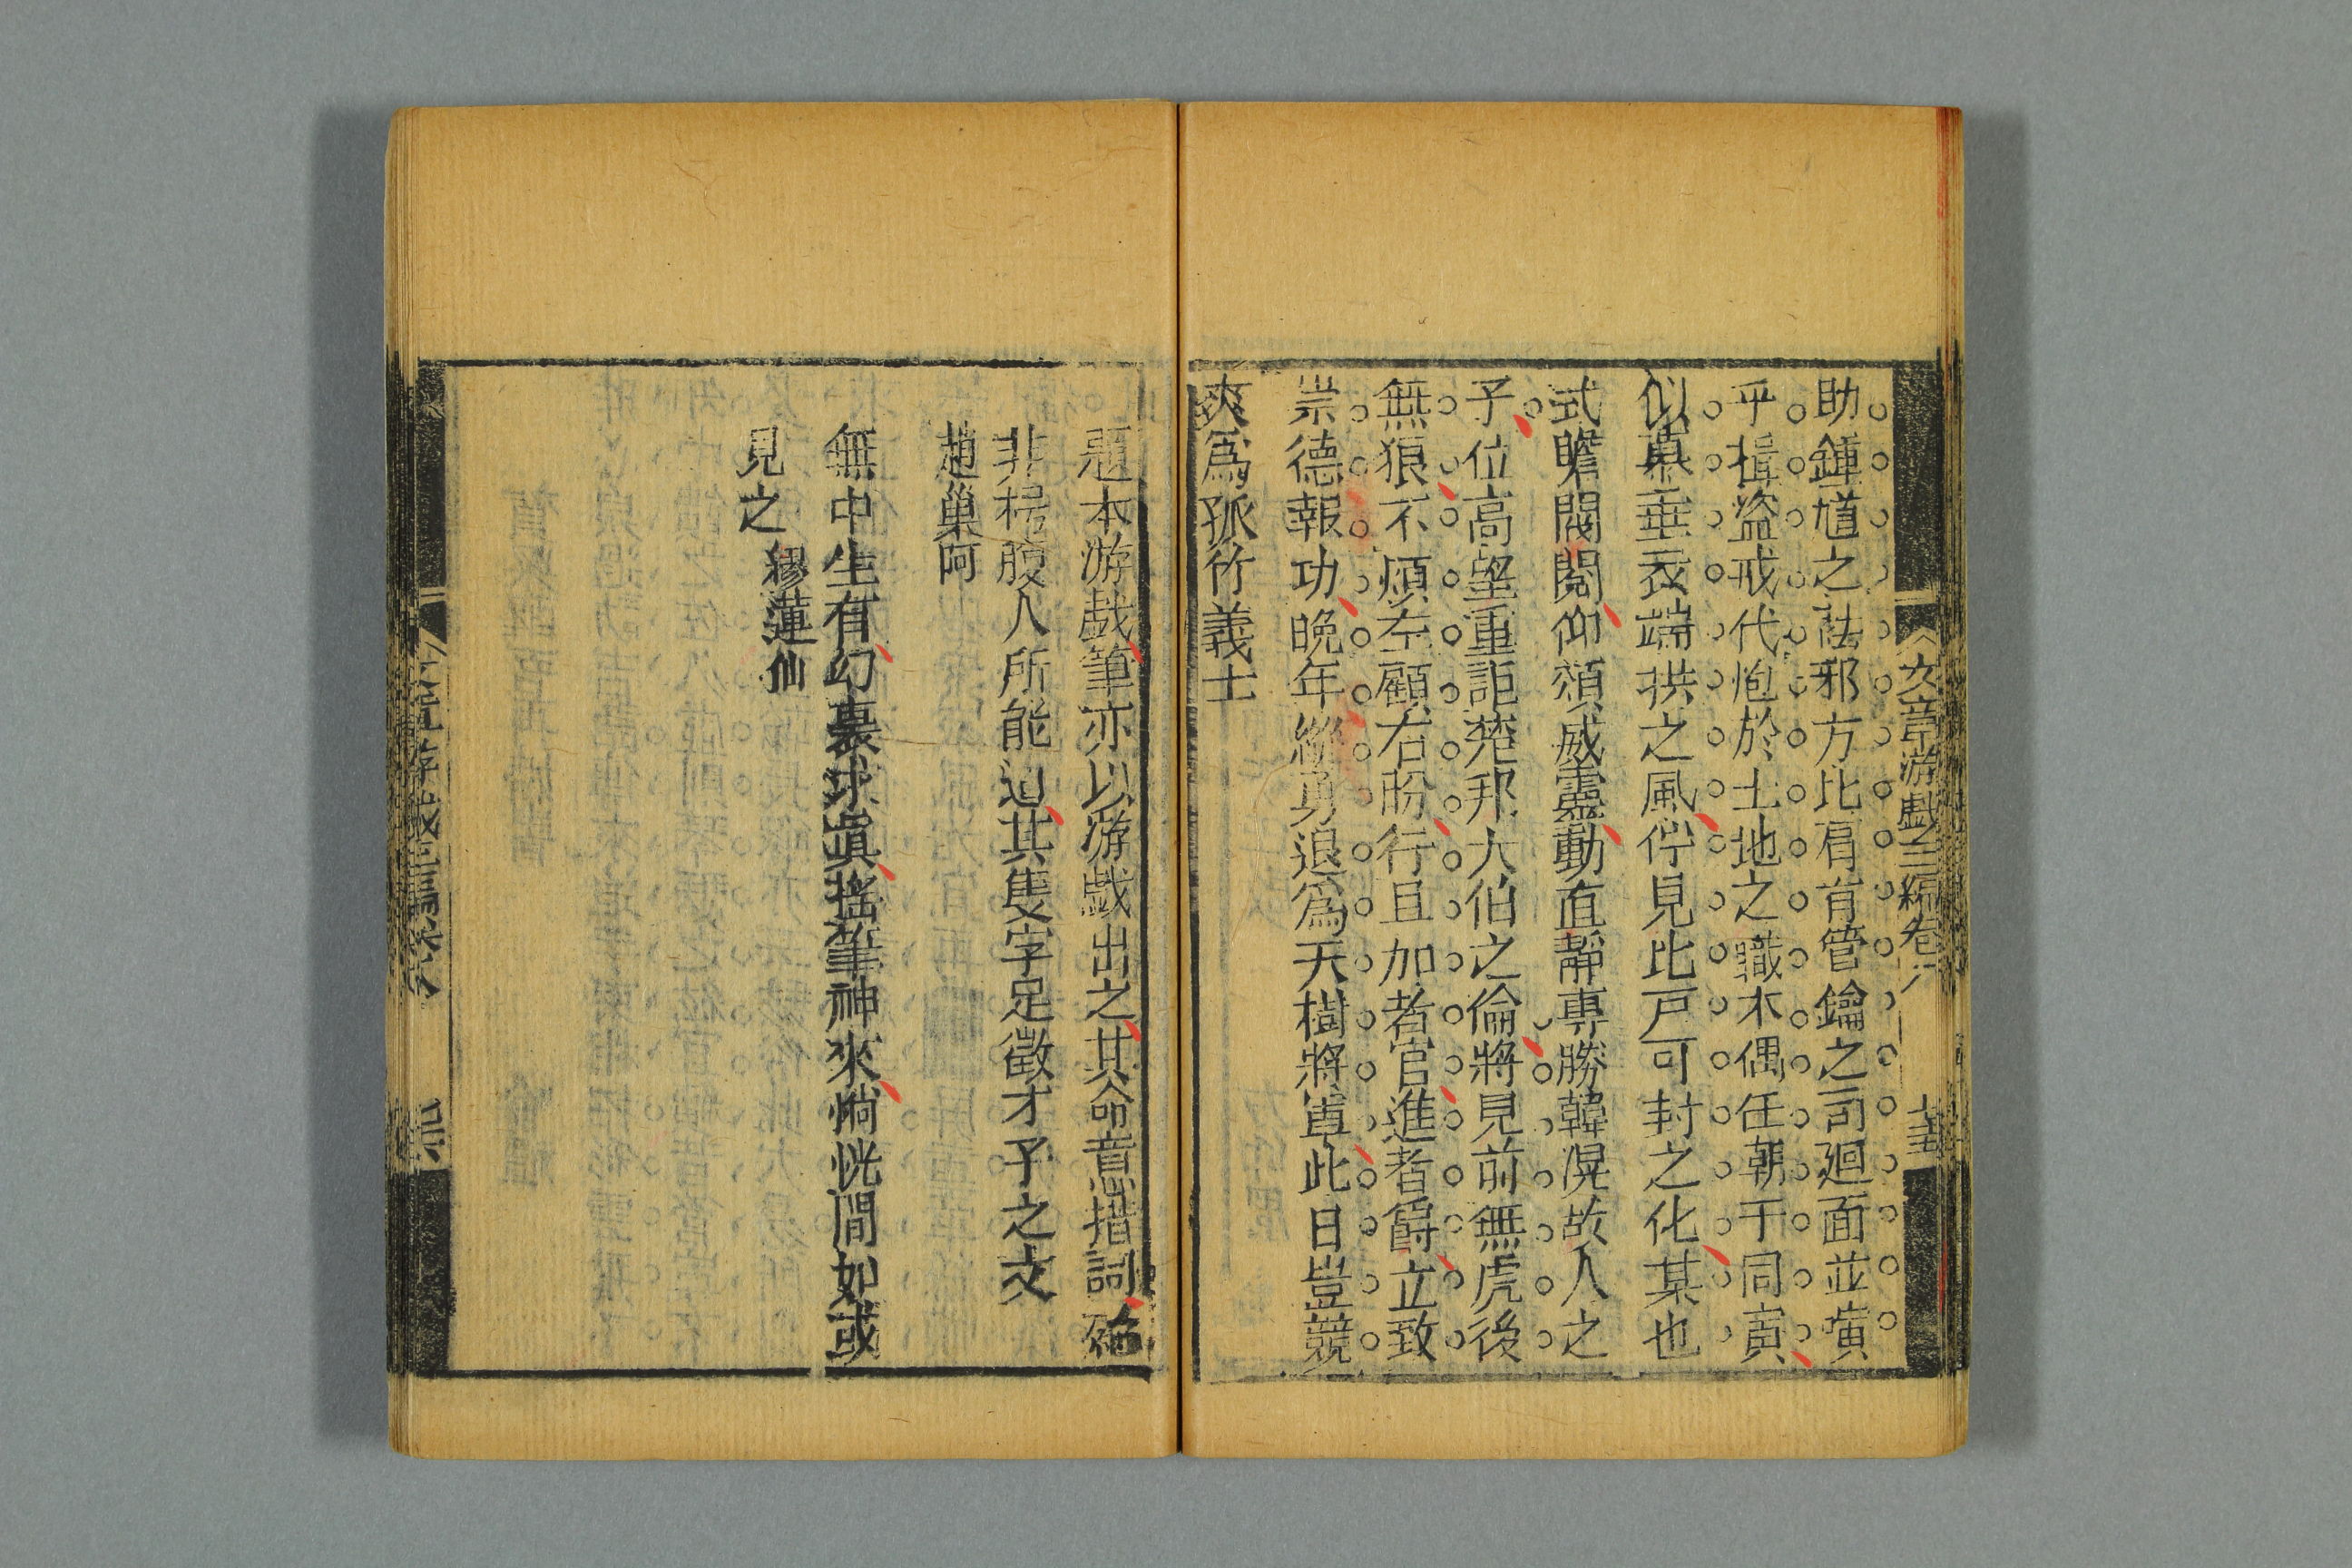 文章游戲三編卷八
助鍾馗之祛邪方比肩肯管鑰之司廻面並黄
乎楫盜戒代庖於土地之職木偶任朝于同寅
似慕垂衣端拱之風佇見比戸可封之化某也
式瞻閥閲仰頌威靈動直靜專勝韓滉故人之
子位高望重詎荒邦大伯之倫將見前無虎後
無狼不煩左顧右盼行且加者官進者爵立致
崇德報功晚年縱勇退爲天樹將軍此日豈競
爽爲孤竹義士
題本游戲筆亦以游戲出之其命意措詞絕
非枵腹人所能道其隻字足徵才子之文
趙巢阿
無中生有幻裏求眞搖筆神來惝恍間如或
見之
繆蓮仙
文章游戲三編卷八